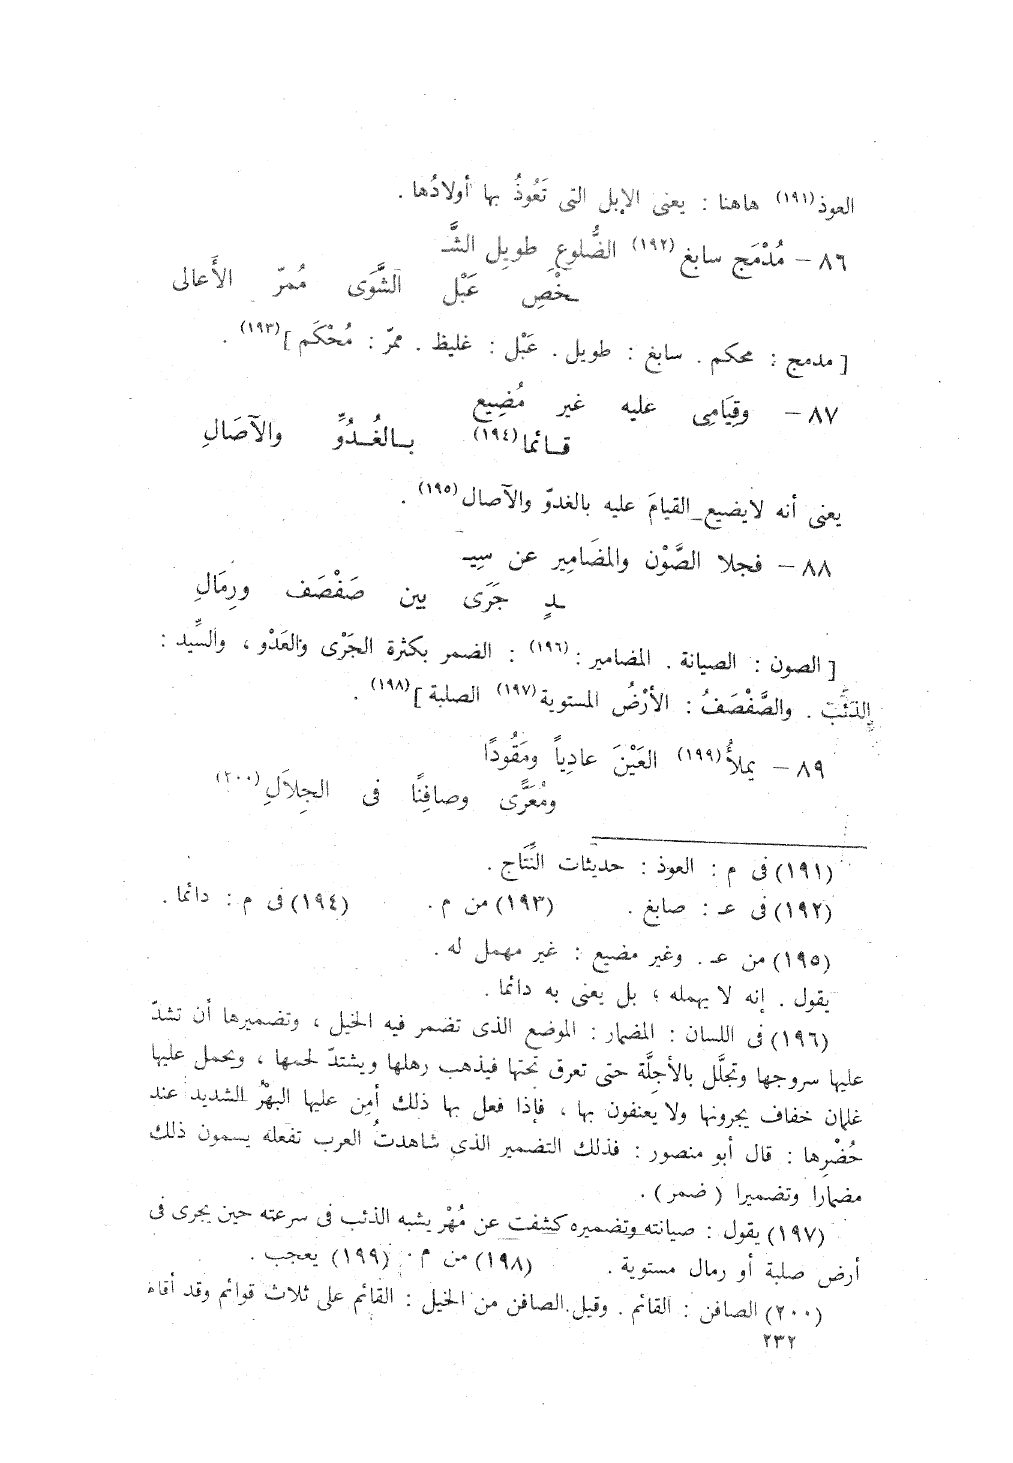 العوذ(١٩١) هاهنا : يعنى الإبل التى تَعُوذُ بها أولادُها .
٨٦ – مُدْمَج سابغ(١٩٢) الضُّلوعِ طويلِ الشَّـ
ـخْصِ عَبْل الشَّوَى مُمرّ الأَعالى
[ مدمج : محكم . سابغ : طويل . عَبْل : غليظ . ممرّ : مُحْكَم ](١٩٣) .
٨٧ – وقِيَامِى عليه غير مُضِيع
قـائما(١٩٤) بـالغُـدُوِّ والآصَالِ
يعنى أنه لايضيع القيامَ عليه بالغدوّ والآصال(١٩٥) .
٨٨ – فجلا الصَّوْن والمضَامِير عن سِيـ
ـدٍ جَرَى بين صَفْصَف ورِمَالِ
[ الصون : الصيانة . المضامير :(١٩٦) : الضمر بكثرة الجَرْى والعَدْو ، والسِّيد :
الذئب . والصَّفْصَفُ : الأرْضُ المستوية(١٩٧) الصلبة ](١٩٨) .
٨٩ – يملأُ(١٩٩) العَيْنَ عادِياً ومَقُودًا
ومُعَرًّى وصافِنًا فى الجِلاَلِ(٢٠٠)
(١٩١) فى م : العوذ : حديثات النَّتَاج .
(١٩٢) فى عـ : صابغ . (١٩٣) من م . (١٩٤) فى م : دائما .
(١٩٥) من عـ . وغير مضيع : غير مهمل له .
يقول . إنه لا يهمله ؛ بل يعنى به دائما .
(١٩٦) فى اللسان : المضمار : الموضع الذى تضمر فيه الخيل ، وتضميرها أن تشدّ
عليها سروجها وتجلَّل بالأجِلَّة حتى تعرق تحتها فيذهب رهلها ويشتدّ لحمها ، ويحمل عليها
غلمان خفاف يجرونها ولا يعنفون بها ، فإذا فعل بها ذلك أمِن عليها البهْرُ الشديد عند
حُضْرِها : قال أبو منصور : فذلك التضمير الذى شاهدتُ العرب تفعله يسمون ذلك
مضمارا وتضميرا ( ضمر ) .
(١٩٧) يقول : صيانته وتضميره كشفت عن مُهْر يشبه الذئب فى سرعته حين يجرى فى
أرض صلبة أو رمال مستوية . (١٩٨) من م . (١٩٩) يعجب .
(٢٠٠) الصافن : القائم . وقيل . الصافن من الخيل : القائم على ثلاث قوائم وقد أقام
٢٣٢